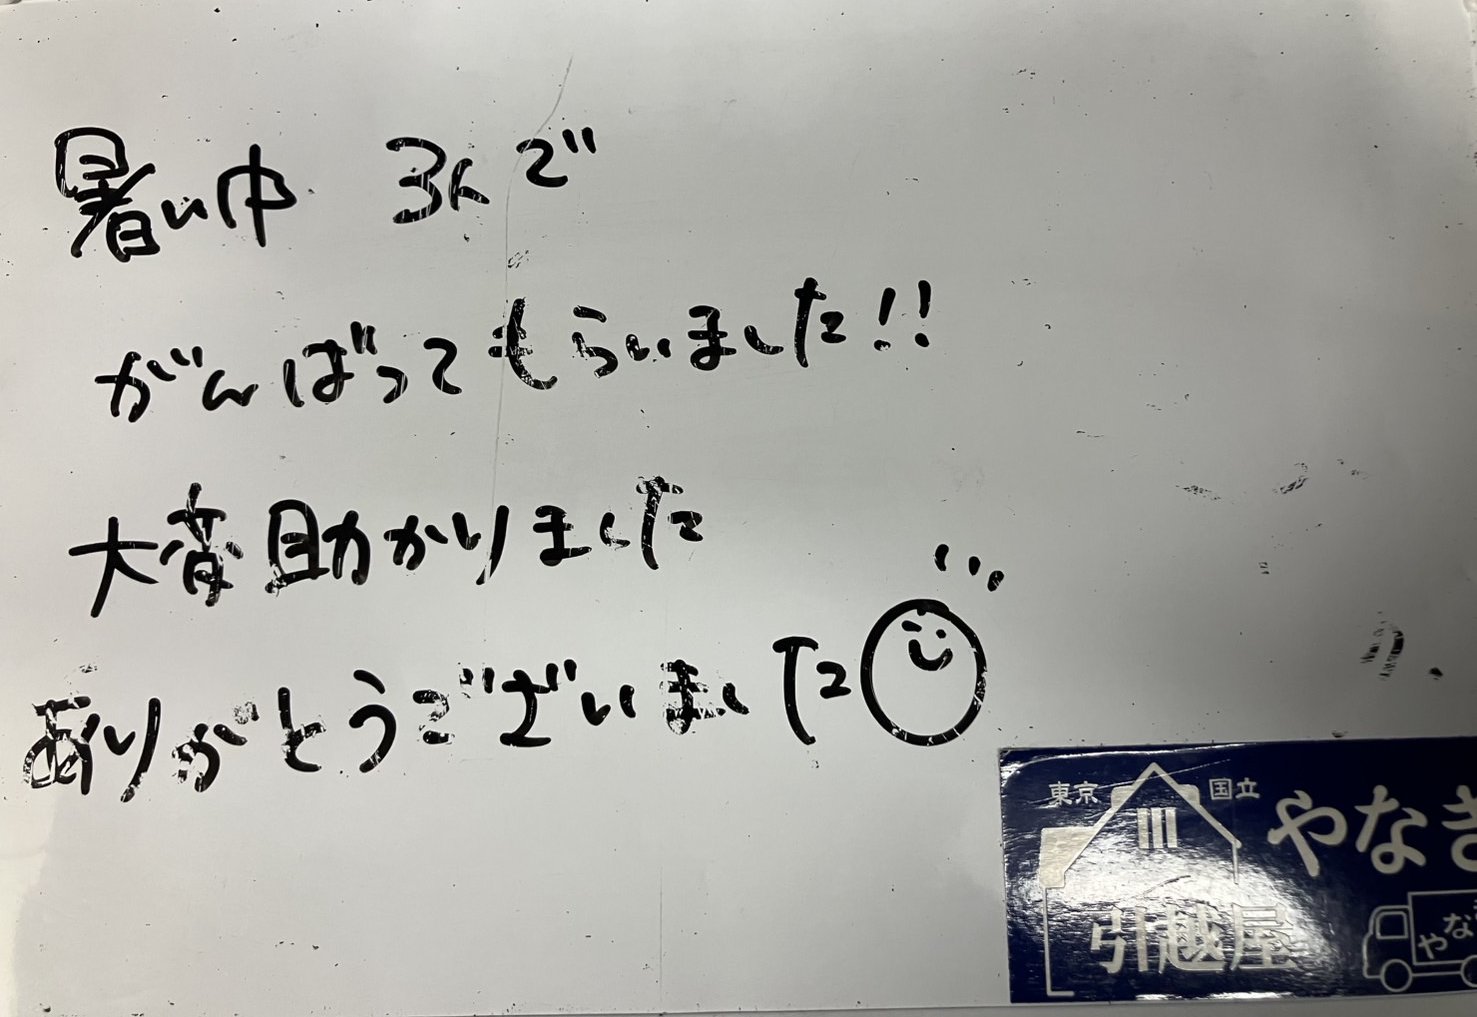 暑い中 3人で
がんばってもらいました!!
大変助かりました
ありがとうございました
東京 国立
やなき
引越屋
やな